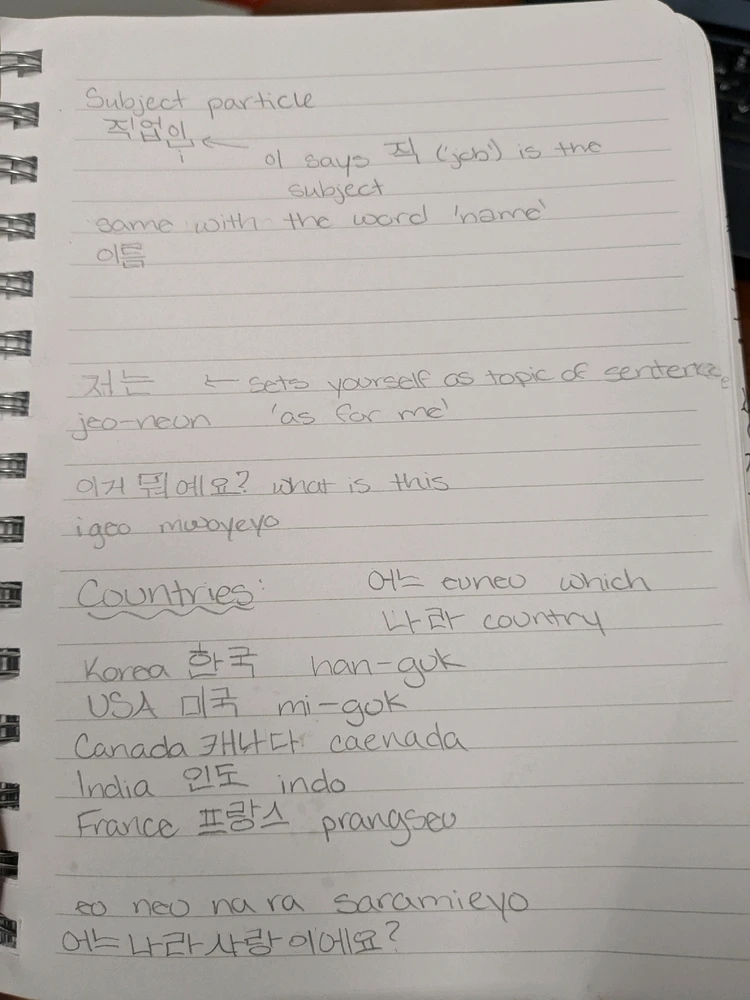 Subject particle
직업이 ←
i 이 says 직 ('job') is the
subject
same with the word 'name'
이름
저는 ← sets yourself as topic of sentence
jeo-neun 'as for me'
이거 뭐예요? what is this
igeo mwoyeyo
Countries: 어느 euneu which
나라 country
Korea 한국 han-guk
USA 미국 mi-guk
Canada 캐나다 caenada
India 인도 indo
France 프랑스 prangseu
eo neu na ra saramieyo
어느 나라 사랑이에요?